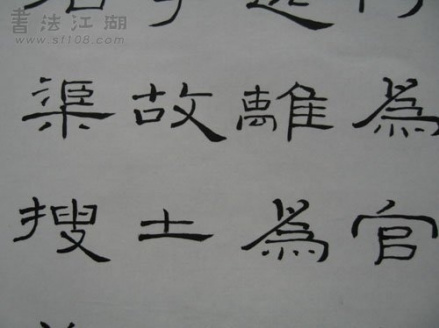 書法江湖
www.sf108.com
渠故離為
搜土為官